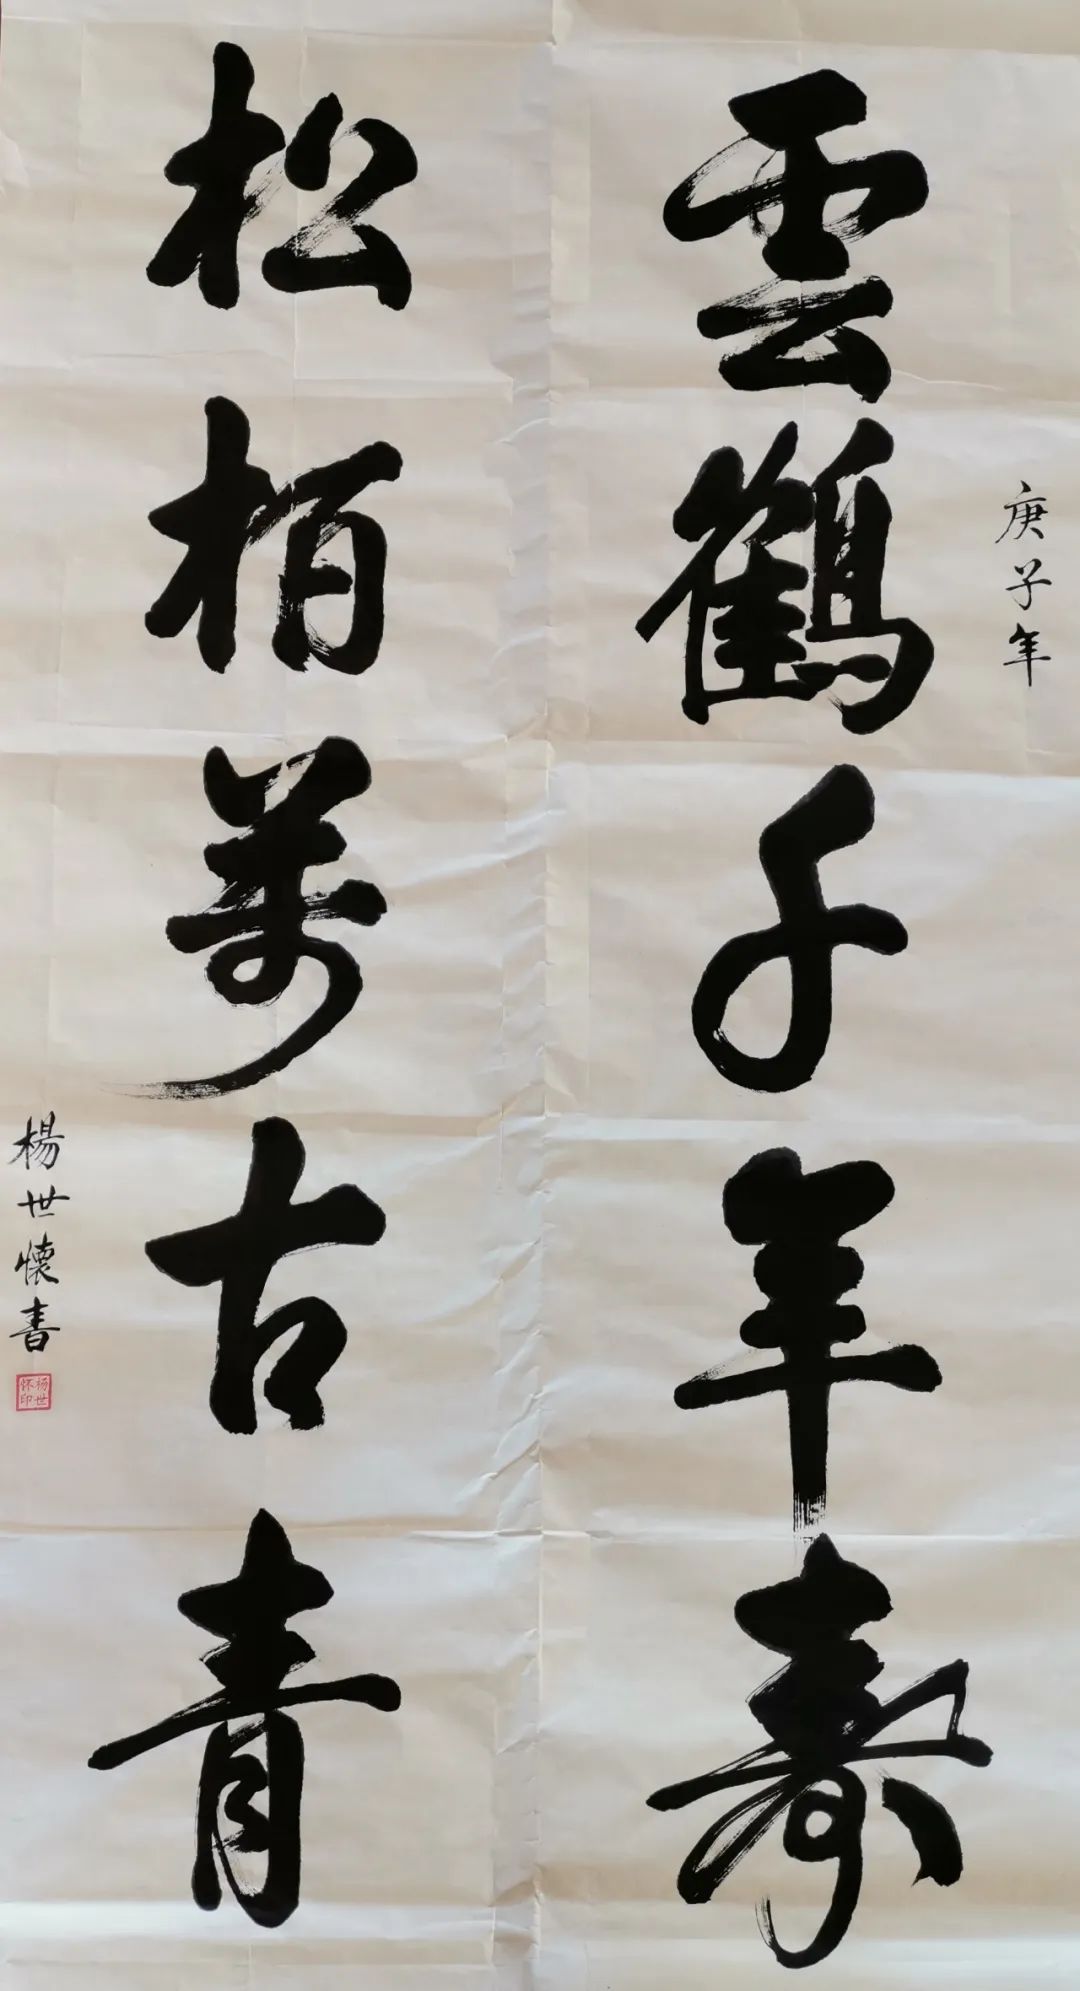 庚子年
雲鶴千年壽
松柏萬古青
楊世懷書
杨世怀印